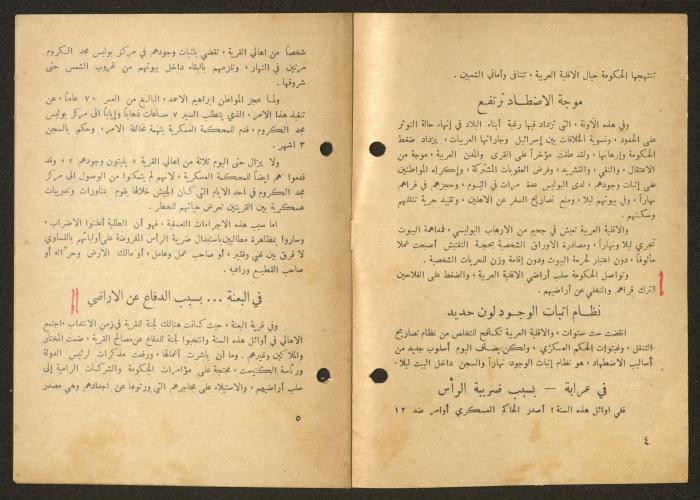 تنتهجها الحكومة حيال الاقلية العربية ، تتنافى وأماني الشعبين .
موجة الاضطهاد ترتفع
وفي هذه الآونة ، التي تزداد فيها رغبة أبناء البلاد في إنهاء حالة التوتر
على الحدود ، وتسوية الخلافات بين إسرائيل وجاراتها العربيات ، يزداد ضغط
الحكومة وإرهابها ، ولقد طغت مؤخراً على القرى والمدن العربية ، موجة من
الاعتقال ، والنفي ، والتشريد ، وفرض العقوبات المشتركة ، وإكراه المواطنين
على إثبات وجودهم ، لدى البوليس عدة مرات في اليوم ، وحجزهم في قراهم
نهاراً ، وفي بيوتهم ليلا ، ومنع تصاريح السفر عن الاهلين ، وتقييد حرية تنقلهم
وسكنهم .
والاقلية العربية تعيش في جحيم من الارهاب البوليسي ، فمداهمة البيوت
تجري ليلا ونهاراً ، ومصادرة الاوراق الشخصية بحجة التفتيش أصبحت عملا
مألوفاً ، دون اعتبار لحرمة البيوت ودون إقامة وزن للحريات الشخصية .
وتواصل الحكومة سلب أراضي الاقلية العربية ، والضغط على الفلاحين
لترك قراهم والتخلي عن أراضيهم .
نظام اثبات الوجود لون جديد
انقضت ست سنوات ، والاقلية العربية تكافح للتخلص من نظام تصاريح
التنقل ، وغيتوات الحكم العسكري ، ولكن يضاف اليوم أسلوب جديد من
أساليب الاضطهاد ، هو نظام إثبات الوجود نهاراً والسجن داخل البيت ليلا .
في عرابة — بسبب ضريبة الرأس
ففي اوائل هذه السنة ؛ أصدر الحاكم العسكري أوامر ضد ١٢
٤
شخصاً من اهالي القرية ، تقضي باثبات وجودهم في مركز بوليس مجد الكروم
مرتين في النهار ، وتلزمهم بالبقاء داخل بيوتهم من غروب الشمس حتى
شروقها .
ولما عجز المواطن ابراهيم الاحمد ، البالغ من العمر ٧٠ عاماً ، عن
تنفيذ هذا الامر ، الذي يتطلب السير ٧ ساعات ذهاباً وإياباً الى مركز بوليس
مجد الكروم ، قدم للمحكمة العسكرية بتهمة مخالفة الامر ، وحكم بالسجن
٣ اشهر .
ولا يزال حتى اليوم ثلاثة من اهالي القرية « يثبتون وجودهم » ، وقد
قدموا هم ايضاً للمحكمة العسكرية ، لانهم لم يتمكنوا من الوصول الى مركز
مجد الكروم في احد الايام التي كان الجيش خلالها يقوم بمناورات وتدريبات
عسكرية بين القريتين تعرض حياتهم للخطر .
اما سبب هذه الاجراءات التعسفية ، فهو أن الطلبة أعلنوا الاضراب ،
وساروا بمظاهرة مطالبين باستبدال ضريبة الرأس المفروضة على أوليائهم بالتساوي
لا فرق بين غني وفقير ، أو صاحب عمل وعامل ، أو مالك الارض وحرّاثه أو
صاحب القطيع وراعيه .
في البعنة ... بسبب الدفاع عن الاراضي
وفي قرية البعنة ، حيث كانت هنالك لجنة للقرية في زمن الانتداب ، اجتمع
الاهالي في أوائل هذه السنة وانتخبوا لجنة للدفاع عن مصالح القرية ، ضمت المختار
والملاكين وغيرهم . وما أن باشرت أعمالها ، ورفعت مذكرات لرئيس الدولة
ورئاسة الكنيست ، محتجة على مؤامرات الحكومة والشركات الرامية إلى
سلب أراضيهم ، والاستيلاء على محاجرهم التي ورثوها عن اجدادهم وهي مصدر
٥